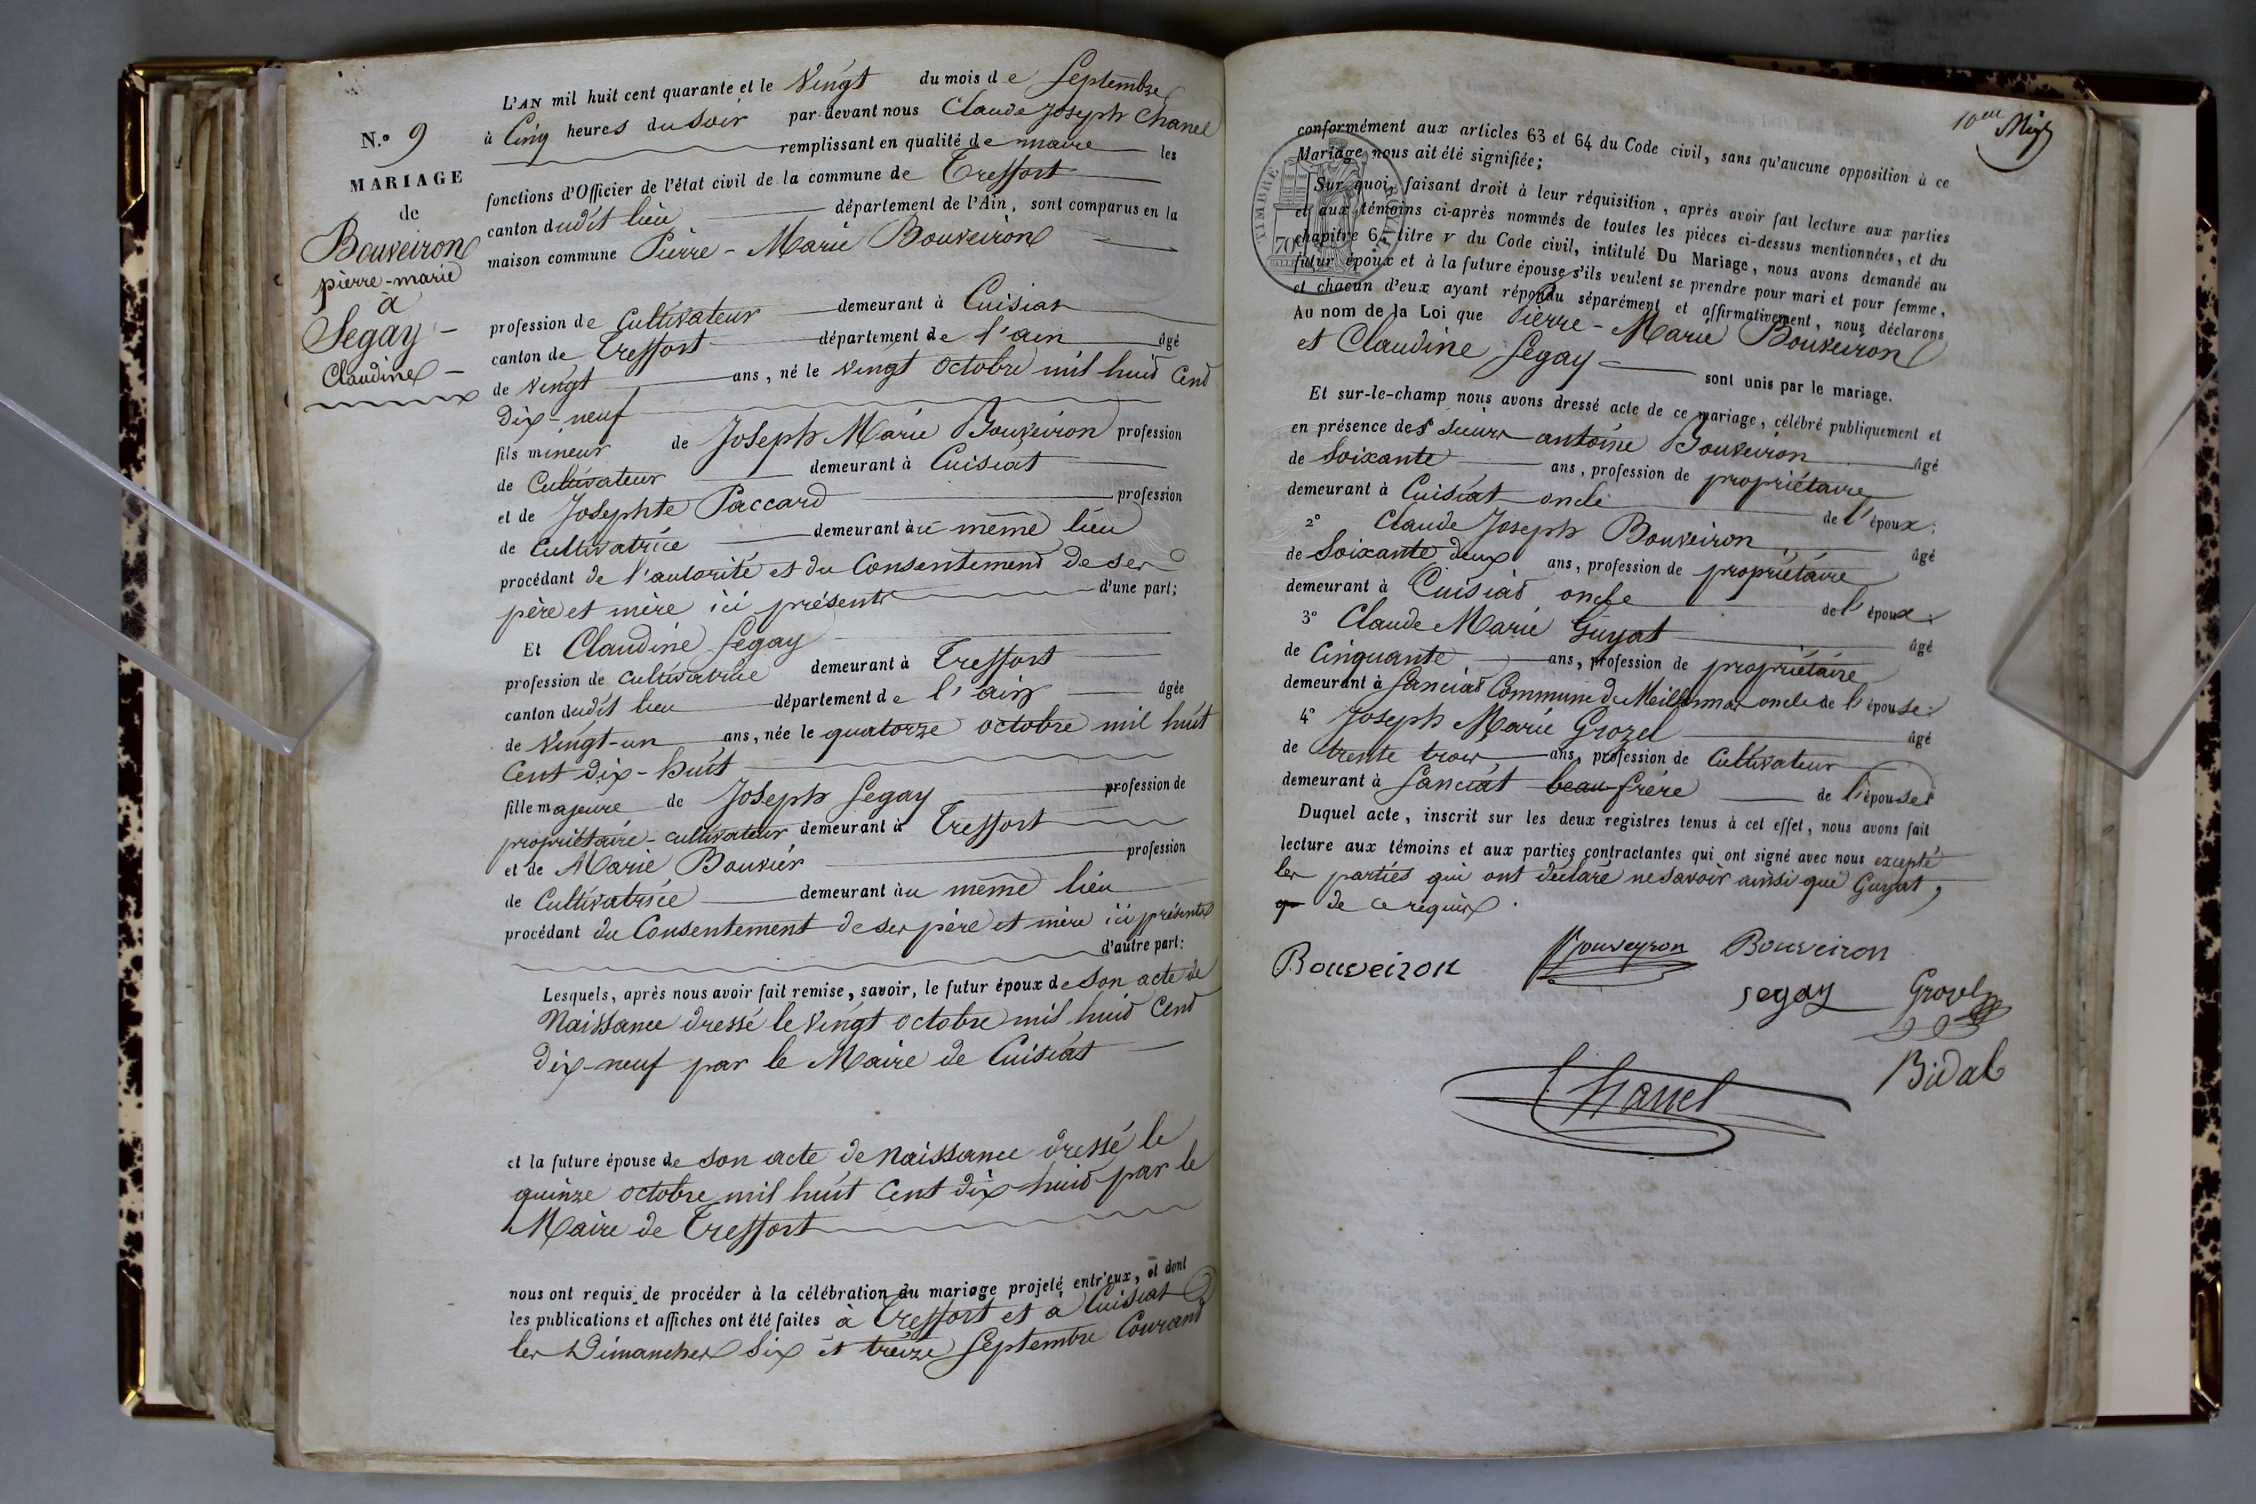 N.° 9
MARIAGE
de
Bouveiron
pierre-marie
à
Segay
Claudine
L'AN mil huit cent quarante et le Vingt du mois de Septembre
à Cinq heures du Soir par devant nous Claude Joseph Chanel
remplissant en qualité de maire les
fonctions d'Officier de l'état civil de la commune de Treffort
canton dudit lieu département de l'Ain, sont comparus en la
maison commune Pierre-Marie Bouveiron
profession de Cultivateur demeurant à Cuisiat
canton de Treffort département de l'ain âgé
de vingt ans, né le vingt octobre mil huit Cent
dix-neuf
fils mineur de Joseph Marie Bouveiron profession
de Cultivateur demeurant à Cuisiat
et de Josephte Paccard profession
de Cultivatrice demeurant au même lieu
procédant de l'autorité et du Consentement de ses
père et mère ici présents d'une part;
Et Claudine Segay
profession de cultivatrice demeurant à Treffort
canton dudit lieu département de l'ain âgée
de Vingt-un ans, née le quatorze octobre mil huit
Cent dix-huit
fille majeure de Joseph Segay profession de
propriétaire-cultivateur demeurant à Treffort
et de Marie Bouvier profession
de Cultivatrice demeurant au même lieu
procédant du Consentement de ses père et mère ici présents
d'autre part:
Lesquels, après nous avoir fait remise, savoir, le futur époux de Son acte de
Naissance dressé le vingt octobre mil huit Cent
dix-neuf par le Maire de Cuisiat
et la future épouse de son acte de Naissance dressé le
quinze octobre mil huit Cent dix-huit par le
Maire de Treffort
nous ont requis de procéder à la célébration du mariage projeté entr'eux, et dont
les publications et affiches ont été faites à Treffort et à Cuisiat
les Dimanches Six et treize Septembre Courant
10eme
conformément aux articles 63 et 64 du Code civil, sans qu'aucune opposition à ce
Mariage nous ait été signifiée;
TIMBRE ROYAL
70
Sur quoi, faisant droit à leur réquisition, après avoir fait lecture aux parties
et aux témoins ci-après nommés de toutes les pièces ci-dessus mentionnées, et du
chapitre 6, titre V du Code civil, intitulé Du Mariage, nous avons demandé au
futur époux et à la future épouse s'ils veulent se prendre pour mari et pour femme,
et chacun d'eux ayant répondu séparément et affirmativement, nous déclarons
Au nom de la Loi que Pierre-Marie Bouveiron
et Claudine Segay sont unis par le mariage.
Et sur-le-champ nous avons dressé acte de ce mariage, célébré publiquement et
en présence des Sieurs antoine Bouveiron âgé
de Soixante ans, profession de propriétaire
demeurant à Cuisiat oncle de l'époux;
2° Claude Joseph Bouveiron âgé
de Soixante deux ans, profession de propriétaire
demeurant à Cuisiat oncle de l'époux;
3° Claude Marie Guyat âgé
de Cinquante ans, profession de propriétaire
demeurant à Sanciat Commune de Meillonnas oncle de l'épouse;
4° Joseph Marie Grozel âgé
de trente trois ans, profession de Cultivateur
demeurant à Sanciat beau-frère de l'épouse
Duquel acte, inscrit sur les deux registres tenus à cet effet, nous avons fait
lecture aux témoins et aux parties contractantes qui ont signé avec nous excepté
les parties qui ont déclaré ne savoir ainsi que Guyat,
de ce requis.
Bouveiron Bouveyron Bouveiron
segay Grozel
Bidal
Chanel